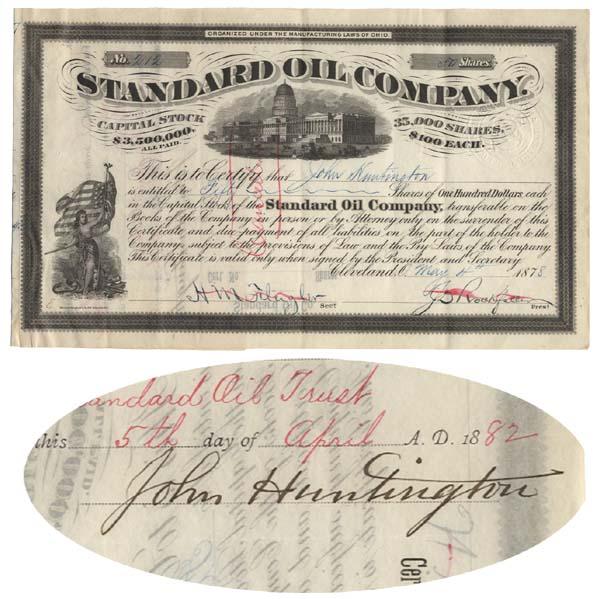 ORGANIZED UNDER THE MANUFACTURING LAWS OF OHIO.
No. Shares
STANDARD OIL COMPANY.
CAPITAL STOCK 35,000 SHARES,
$3,500,000. $100 EACH.
ALL PAID.
This is to Certify that John Huntington
is entitled to Fifty Shares of One Hundred Dollars, each
in the Capital Stock of the Standard Oil Company, transferable on the
Books of the Company in person or by Attorney only on the surrender of this
Certificate and due payment of all liabilities on the part of the holder to the
Company, subject to the provisions of Law and the By Laws of the Company.
This Certificate is valid only when signed by the President and Secretary
Cleveland, O. May 4th 1878
H. M. Flagler Secy J. D. Rockefeller Prest
Standard Oil Trust
this 5th day of April A. D. 1882
John Huntington